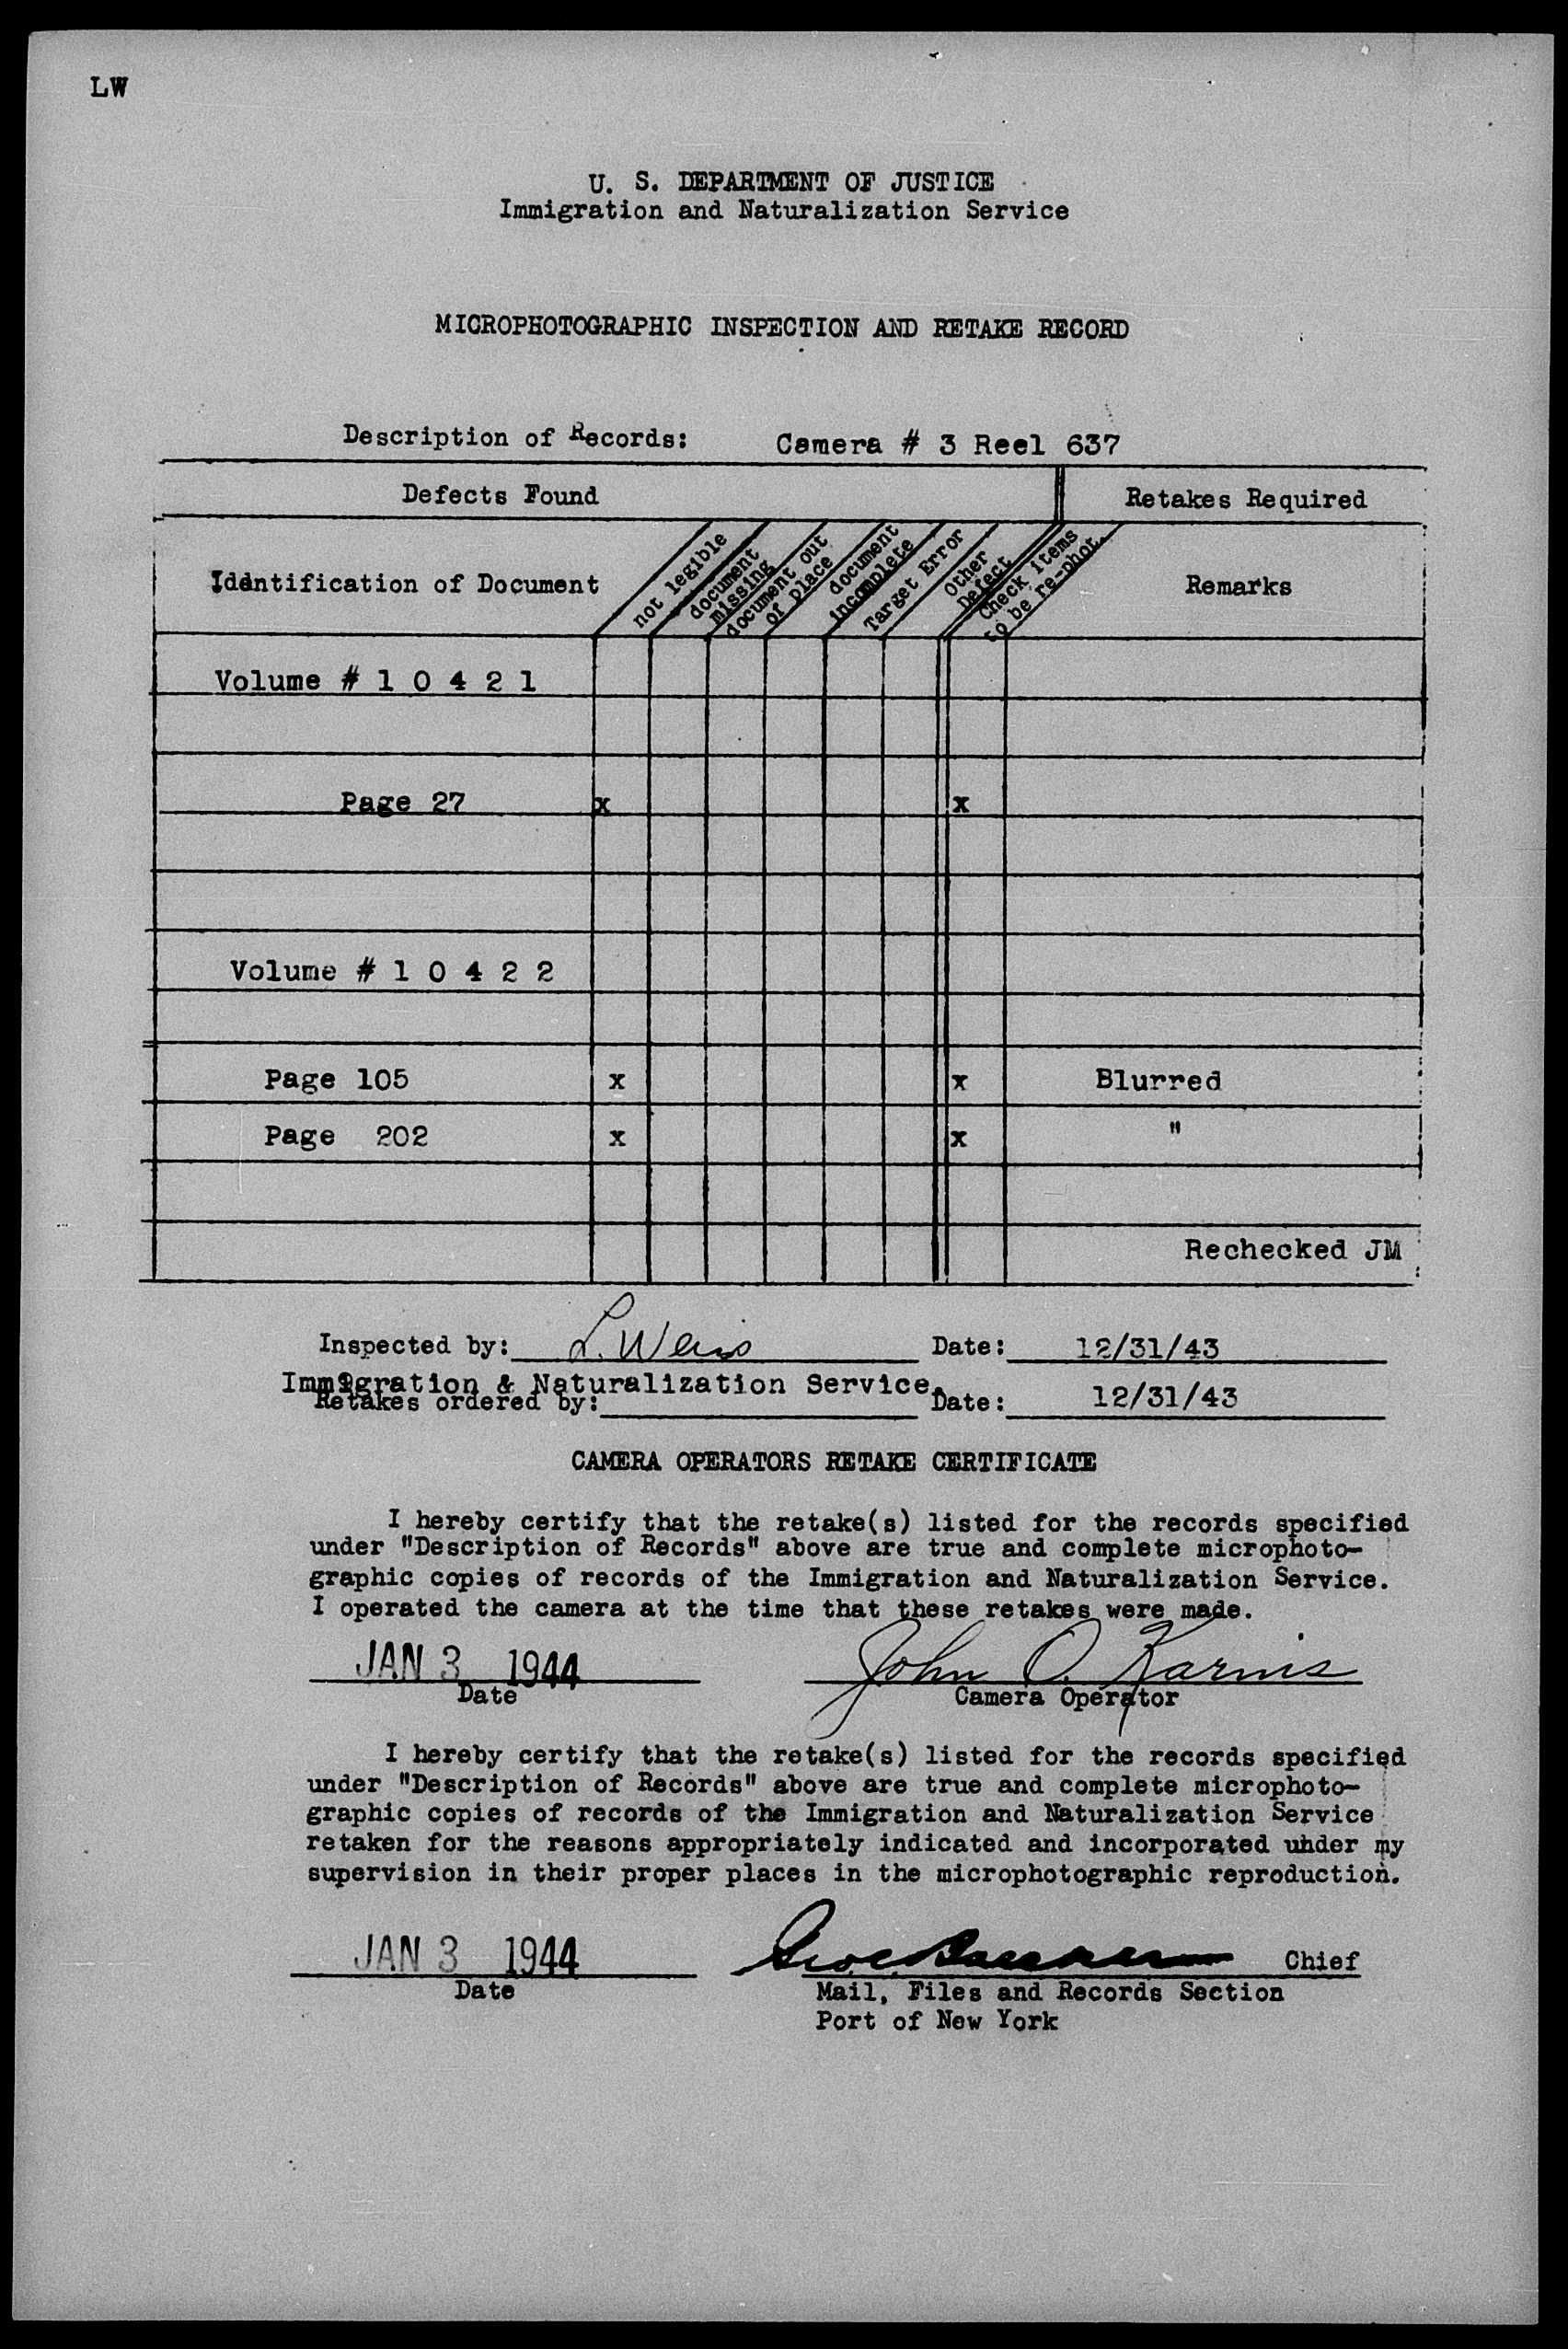 LW
U. S. DEPARTMENT OF JUSTICE
Immigration and Naturalization Service
MICROPHOTOGRAPHIC INSPECTION AND RETAKE RECORD
Description of Records: Camera # 3 Reel 637
Defects Found Retakes Required
Identification of Document
not legible
document missing
document out of place
document incomplete
Target Error
Other Defect
Check items to be re-phot.
Remarks
Volume # 1 0 4 2 1
Page 27 x x
Volume # 1 0 4 2 2
Page 105 x x Blurred
Page 202 x x "
Rechecked JM
Inspected by: L. Weis Date: 12/31/43
Immigration & Naturalization Service.
Retakes ordered by: Date: 12/31/43
CAMERA OPERATORS RETAKE CERTIFICATE
I hereby certify that the retake(s) listed for the records specified
under "Description of Records" above are true and complete microphoto-
graphic copies of records of the Immigration and Naturalization Service.
I operated the camera at the time that these retakes were made.
JAN 3 1944 John O. Karnis
Date Camera Operator
I hereby certify that the retake(s) listed for the records specified
under "Description of Records" above are true and complete microphoto-
graphic copies of records of the Immigration and Naturalization Service
retaken for the reasons appropriately indicated and incorporated uhder my
supervision in their proper places in the microphotographic reproduction.
JAN 3 1944 Chief
Date Mail, Files and Records Section
Port of New York